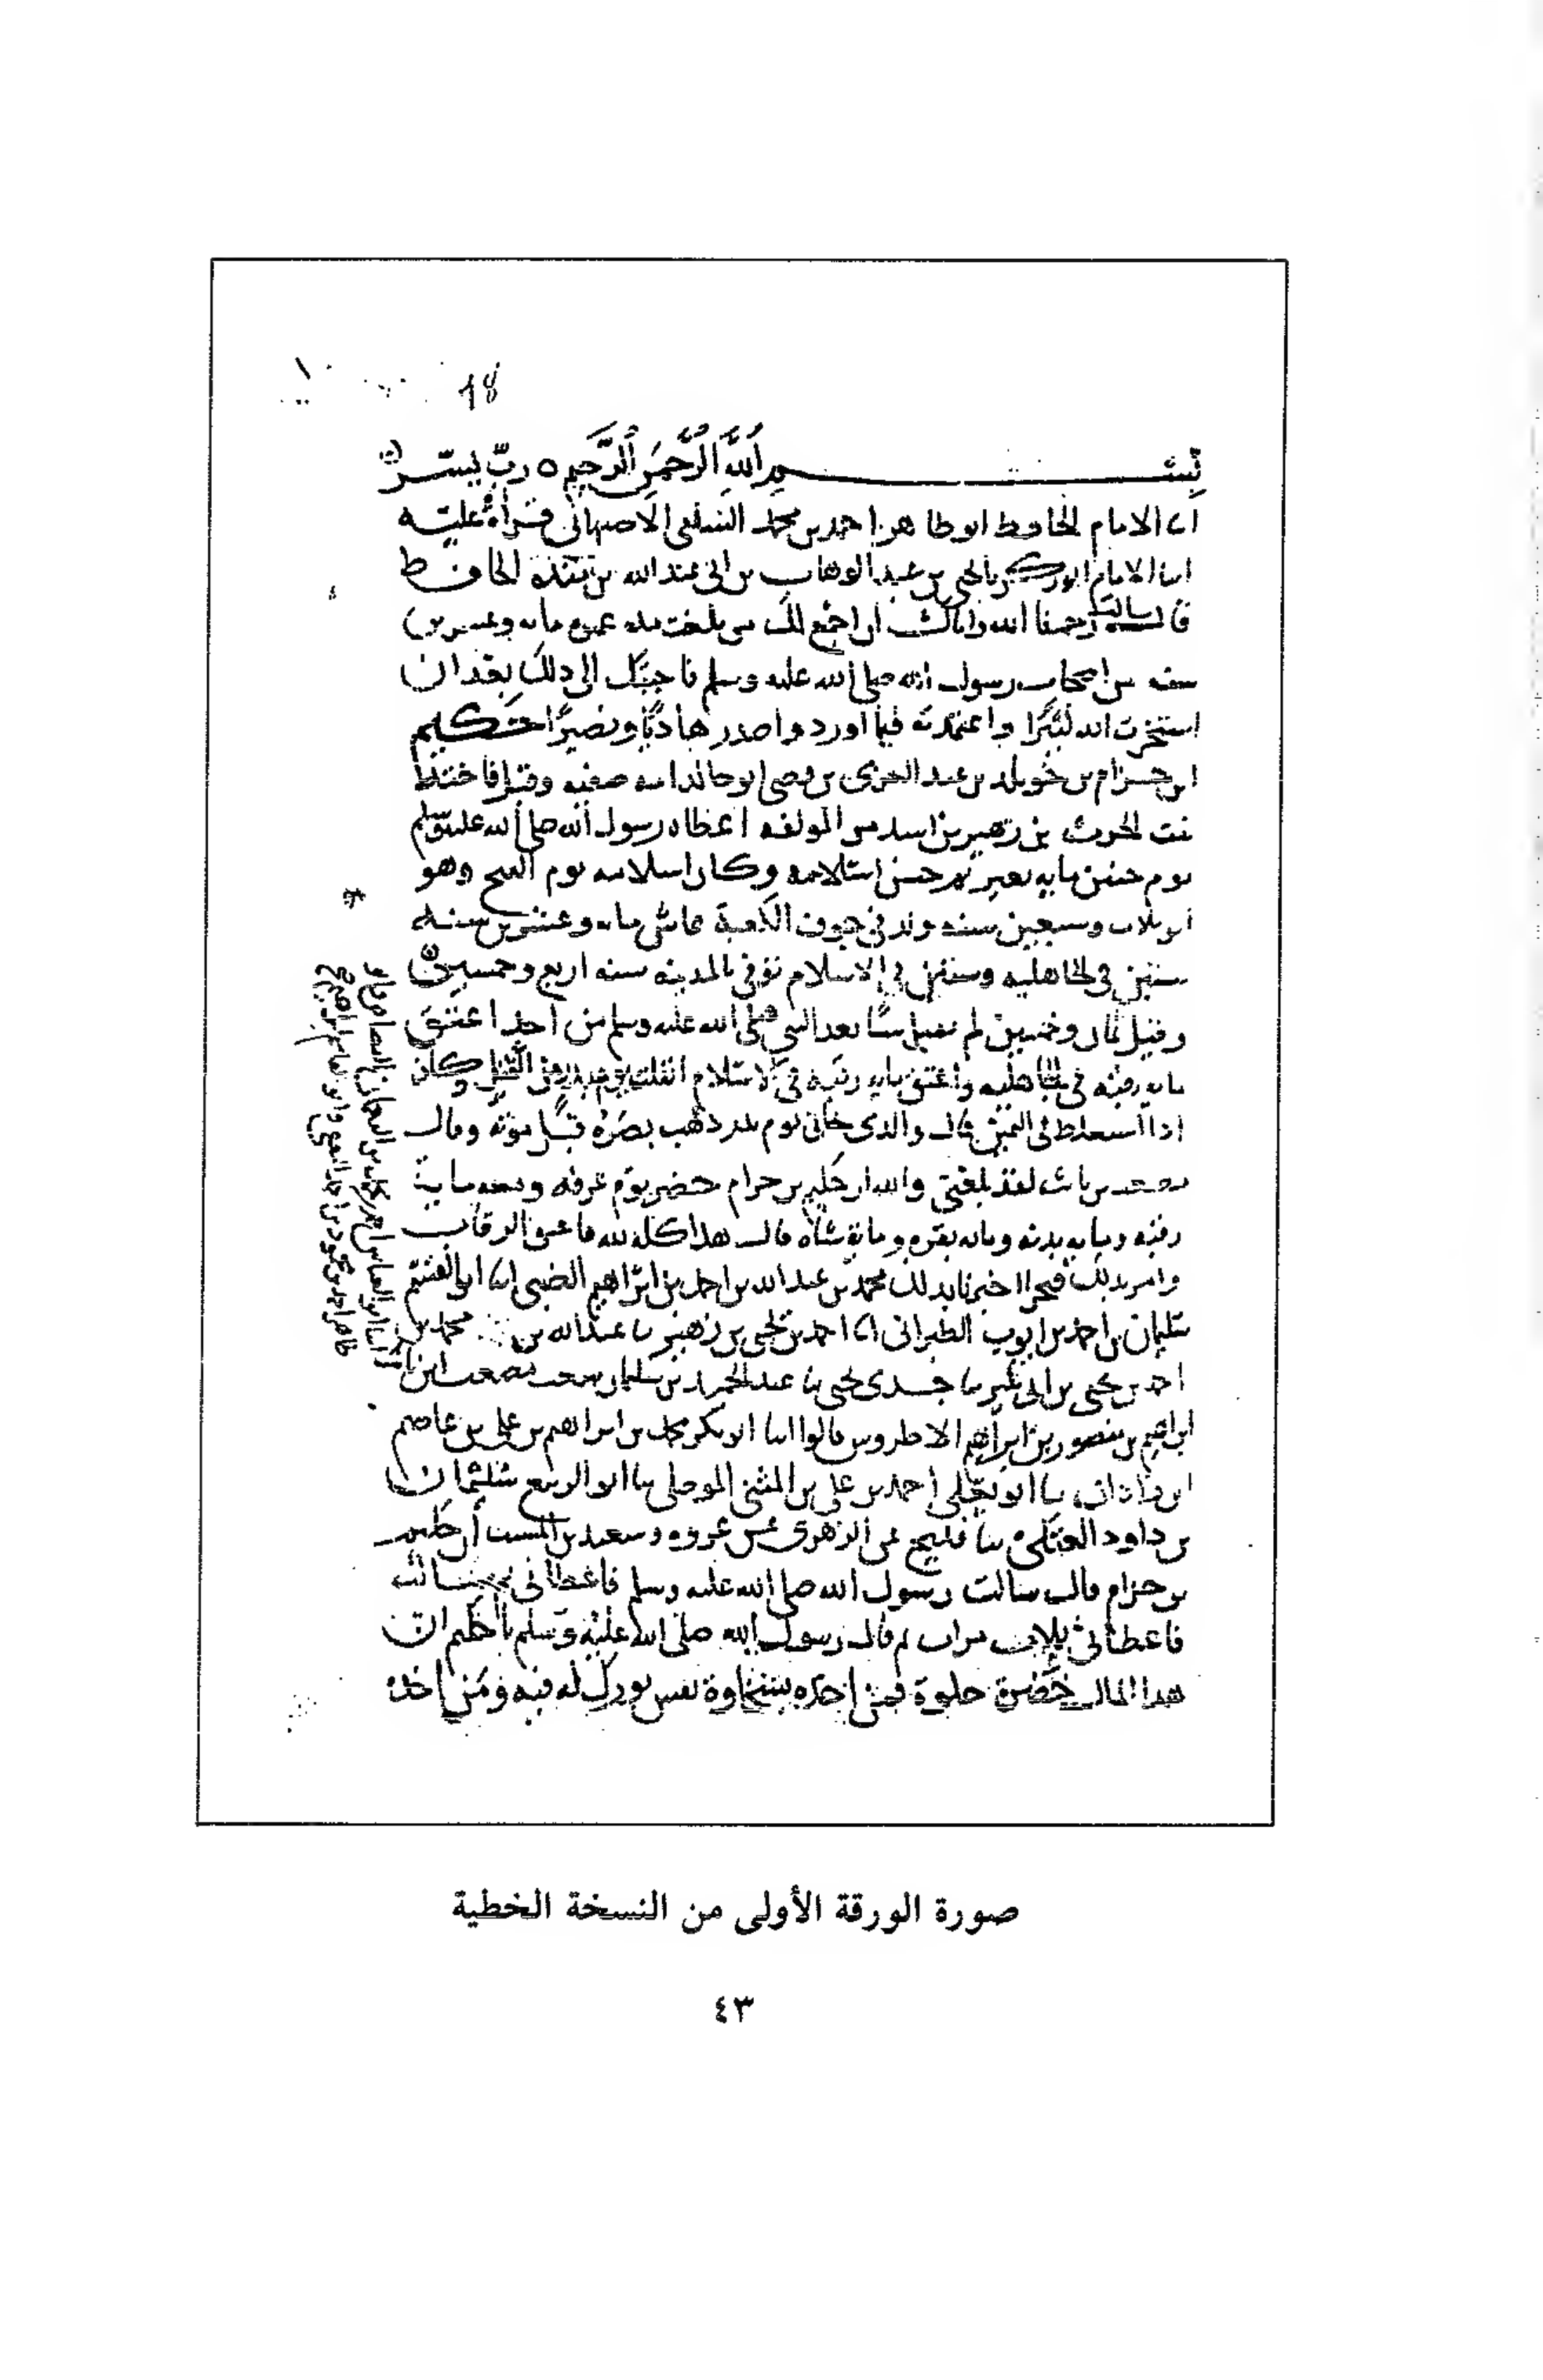 18
بسم اللهِ الرَّحمَنِ الرَّحِيمِ ه ربّ يسّر
الامام الحافظ ابو طاهر احمد بن محمد السلفي الاصبهاني قراءة عليه
الامام ابو زكريا يحيى بن عبد الوهاب بن ابي عبد الله بن منده الحافظ
قال سالت رحمنا الله واياك ان اجمع لك من بلغت عمره مايه وعشرين
سنه من اصحاب رسول الله صلى الله عليه وسلم فاجبتك الى ذلك بعد ان
استخرت الله واعتمدته فيما اورد واصدر هاديًا ونصيرًا حكيم
ابن حزام بن خويلد بن عبد العزى بن قصي ابو خالد امه صفيه وقيل فاخته
بنت الحرث بن زهير بن اسد من المولفه اعطاه رسول الله صلى الله عليه وسلم
يوم حنين مايه بعير ثم حسن اسلامه وكان اسلامه يوم الفتح وهو
ابن ثلاث وسبعين سنه ولد في جوف الكعبة عاش مايه وعشرين سنه
ستين في الجاهليه وستين في الاسلام توفي بالمدينه سنه اربع وخمسين
وقيل ثمان وخمسين لم يقبل شيا بعد النبي صلى الله عليه وسلم من احد اعتق
مايه رقبه في الجاهليه واعتق مايه رقبه في الاسلام انفلت يوم بدر من القتل وكان
اذا استغلظ في اليمين قال والذي نجاني يوم بدر ذهب بصره قبل موته وقال
مصعب بن ثابت لقد بلغني والله ان حكيم بن حزام حضر يوم عرفه ومعه ماية
رقبه ومايه بدنه ومايه بقره وماية شاة قال هذا كله لله فاعتق الرقاب
وامر بذلك فنحر اخبرنا بذلك محمد بن عبد الله بن احمد بن ابراهيم الضبي ابو القسم
سليمان بن احمد بن ايوب الطبراني احمد بن يحيى بن زهير عبد الله بن محمد بن
احمد بن يحيى بن ابي بكير جدي يحيى عبد الحميد بن سليمان سمعت مصعب ابن ثابت
ابراهيم بن منصور بن ابراهيم قالوا ابو بكر محمد بن ابراهيم بن علي بن عاصم
ابن زاذان ابو يعلى احمد بن علي بن المثنى الموصلي ابو الربيع سليمان
بن داود العتكي فليح عن الزهري عن عروه وسعيد بن المسيب أن حكيم
بن حزام قال سالت رسول الله صلى الله عليه وسلم فاعطاني ثم سالته
فاعطاني ثلاث مرات ثم قال رسول الله صلى الله عليه وسلم يا حكيم ان
هذا المال خضرة حلوة فمن اخذه بسخاوة نفس بورك له فيه ومن اخذه
صورة الورقة الأولى من النسخة الخطية
٤٣